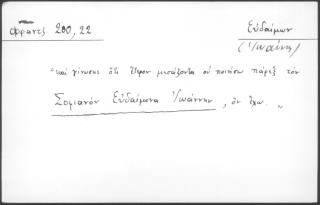 Φραντζ 200,22
Εὐδαίμων
(Ἰωάννης)
"καὶ γίνωσκε ὅτι ἕτερον μεσάζοντα οὐ ποιήσω πάρεξ τὸν
Σοφιανὸν Εὐδαίμονα Ἰωάννην, ὃν ἔχω."